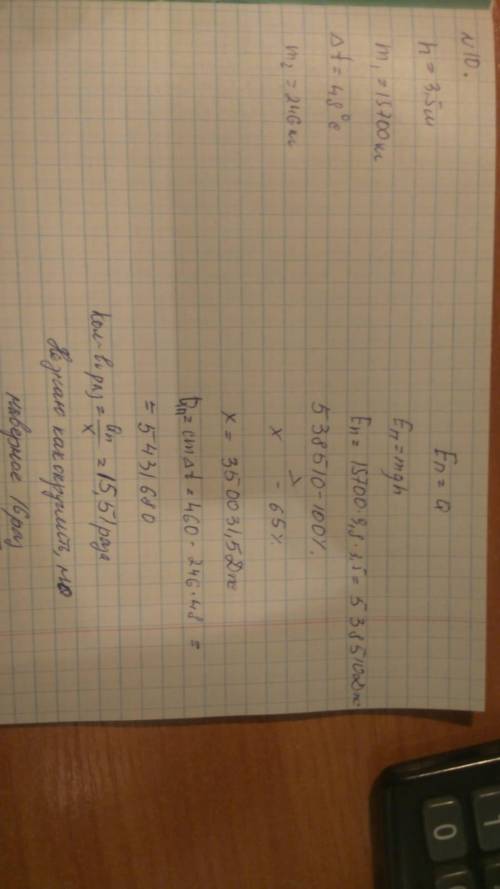 №10.
h = 3,5 м
m₁ = 15700 кг
Δt = 48°C
m₂ = 246 кг
Eп = Q
Eп = mgh
Eп = 15700 · 9,8 · 3,5 = 538510 Дж
538510 - 100%
x - 65%
x = 350031,5 Дж
Qп = cmΔt = 460 · 246 · 48 =
= 5431680
Кол-во раз = Qп/x = 15,51 раза
Не знаю как округлить, но
наверное 16 раз
0